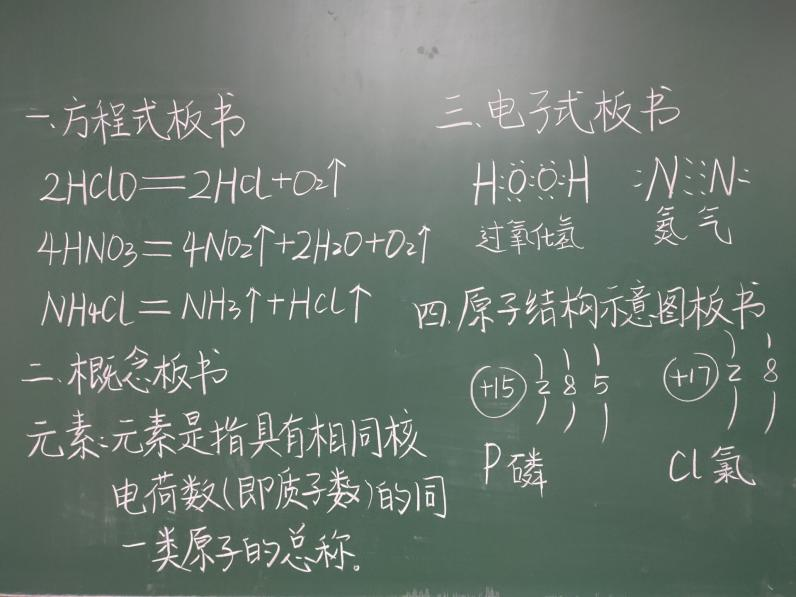 一.方程式板书
2HClO=2HCl+O₂↑
4HNO₃=4NO₂↑+2H₂O+O₂↑
NH₄Cl=NH₃↑+HCl↑
二.概念板书
元素:元素是指具有相同核
电荷数(即质子数)的同
一类原子的总称。
三.电子式板书
H:Ö:Ö:H :N⋮⋮N:
过氧化氢 氮气
四.原子结构示意图板书
+15 2 8 5 +17 2 8
P磷 Cl氯